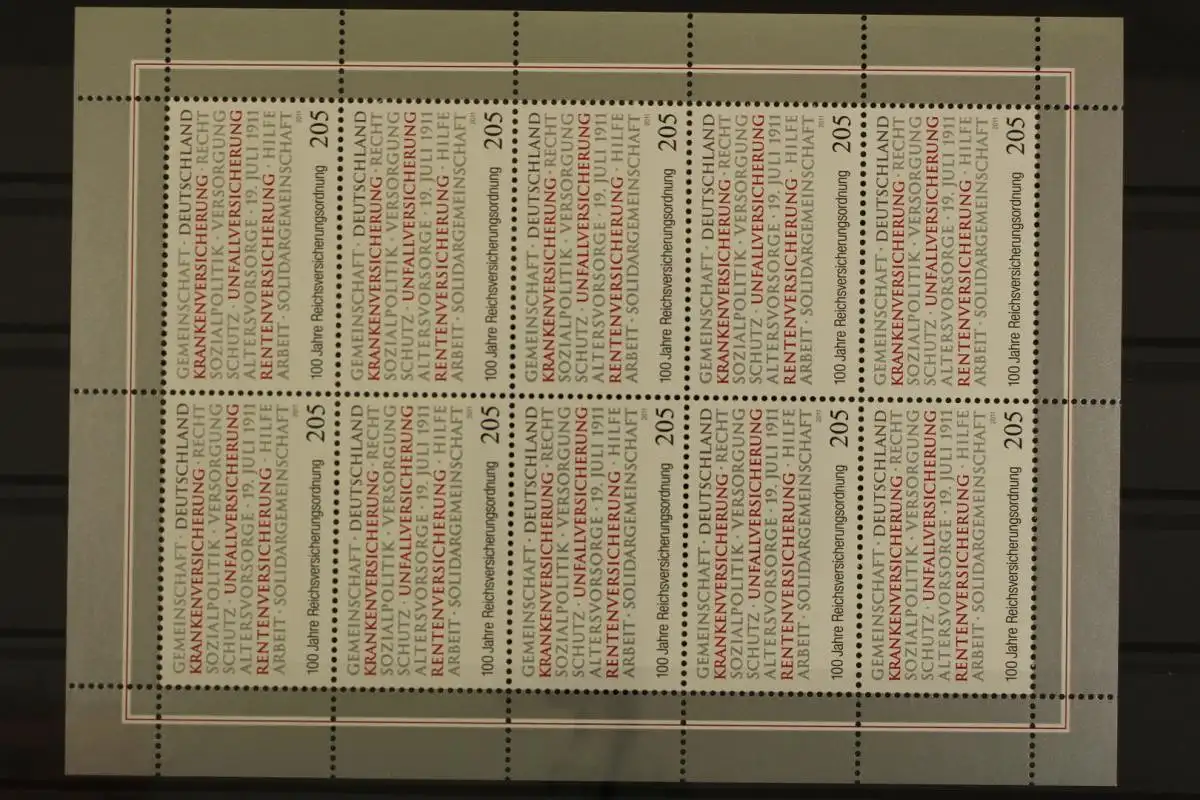 GEMEINSCHAFT · DEUTSCHLAND
KRANKENVERSICHERUNG · RECHT
SOZIALPOLITIK · VERSORGUNG
SCHUTZ · UNFALLVERSICHERUNG
ALTERSVORSORGE · 19. JULI 1911
RENTENVERSICHERUNG · HILFE
ARBEIT · SOLIDARGEMEINSCHAFT
2011
100 Jahre Reichsversicherungsordnung 205
GEMEINSCHAFT · DEUTSCHLAND
KRANKENVERSICHERUNG · RECHT
SOZIALPOLITIK · VERSORGUNG
SCHUTZ · UNFALLVERSICHERUNG
ALTERSVORSORGE · 19. JULI 1911
RENTENVERSICHERUNG · HILFE
ARBEIT · SOLIDARGEMEINSCHAFT
2011
100 Jahre Reichsversicherungsordnung 205
GEMEINSCHAFT · DEUTSCHLAND
KRANKENVERSICHERUNG · RECHT
SOZIALPOLITIK · VERSORGUNG
SCHUTZ · UNFALLVERSICHERUNG
ALTERSVORSORGE · 19. JULI 1911
RENTENVERSICHERUNG · HILFE
ARBEIT · SOLIDARGEMEINSCHAFT
2011
100 Jahre Reichsversicherungsordnung 205
GEMEINSCHAFT · DEUTSCHLAND
KRANKENVERSICHERUNG · RECHT
SOZIALPOLITIK · VERSORGUNG
SCHUTZ · UNFALLVERSICHERUNG
ALTERSVORSORGE · 19. JULI 1911
RENTENVERSICHERUNG · HILFE
ARBEIT · SOLIDARGEMEINSCHAFT
2011
100 Jahre Reichsversicherungsordnung 205
GEMEINSCHAFT · DEUTSCHLAND
KRANKENVERSICHERUNG · RECHT
SOZIALPOLITIK · VERSORGUNG
SCHUTZ · UNFALLVERSICHERUNG
ALTERSVORSORGE · 19. JULI 1911
RENTENVERSICHERUNG · HILFE
ARBEIT · SOLIDARGEMEINSCHAFT
2011
100 Jahre Reichsversicherungsordnung 205
GEMEINSCHAFT · DEUTSCHLAND
KRANKENVERSICHERUNG · RECHT
SOZIALPOLITIK · VERSORGUNG
SCHUTZ · UNFALLVERSICHERUNG
ALTERSVORSORGE · 19. JULI 1911
RENTENVERSICHERUNG · HILFE
ARBEIT · SOLIDARGEMEINSCHAFT
2011
100 Jahre Reichsversicherungsordnung 205
GEMEINSCHAFT · DEUTSCHLAND
KRANKENVERSICHERUNG · RECHT
SOZIALPOLITIK · VERSORGUNG
SCHUTZ · UNFALLVERSICHERUNG
ALTERSVORSORGE · 19. JULI 1911
RENTENVERSICHERUNG · HILFE
ARBEIT · SOLIDARGEMEINSCHAFT
2011
100 Jahre Reichsversicherungsordnung 205
GEMEINSCHAFT · DEUTSCHLAND
KRANKENVERSICHERUNG · RECHT
SOZIALPOLITIK · VERSORGUNG
SCHUTZ · UNFALLVERSICHERUNG
ALTERSVORSORGE · 19. JULI 1911
RENTENVERSICHERUNG · HILFE
ARBEIT · SOLIDARGEMEINSCHAFT
2011
100 Jahre Reichsversicherungsordnung 205
GEMEINSCHAFT · DEUTSCHLAND
KRANKENVERSICHERUNG · RECHT
SOZIALPOLITIK · VERSORGUNG
SCHUTZ · UNFALLVERSICHERUNG
ALTERSVORSORGE · 19. JULI 1911
RENTENVERSICHERUNG · HILFE
ARBEIT · SOLIDARGEMEINSCHAFT
2011
100 Jahre Reichsversicherungsordnung 205
GEMEINSCHAFT · DEUTSCHLAND
KRANKENVERSICHERUNG · RECHT
SOZIALPOLITIK · VERSORGUNG
SCHUTZ · UNFALLVERSICHERUNG
ALTERSVORSORGE · 19. JULI 1911
RENTENVERSICHERUNG · HILFE
ARBEIT · SOLIDARGEMEINSCHAFT
2011
100 Jahre Reichsversicherungsordnung 205